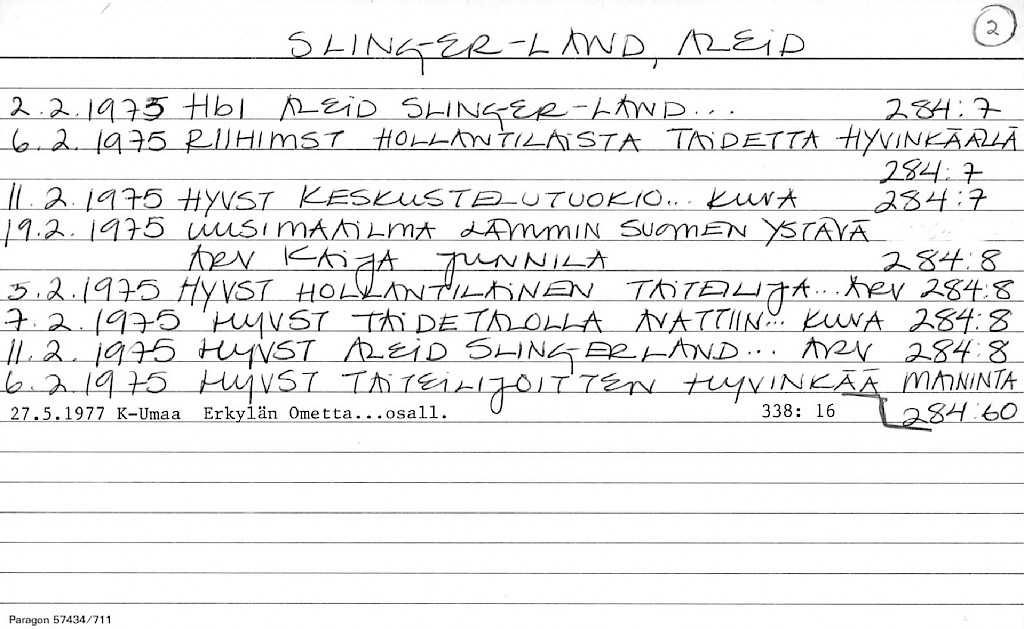 2
SLINGER-LAND, ALEID
2.2.1975 Hbl ALEID SLINGER-LAND... 284:7
6.2.1975 RIIHIMST HOLLANTILAISTA TAIDETTA HYVINKÄÄLLÄ
284:7
11.2.1975 HYVST KESKUSTELUTUOKIO... KUVA 284:7
19.2.1975 UUSI MAAILMA LÄMMIN SUOMEN YSTÄVÄ
ARV KAIJA JUNNILA 284:8
5.2.1975 HYVST HOLLANTILAINEN TAITEILIJA... ARV 284:8
7.2.1975 HYVST TAIDETALOLLA AVATTIIN... KUVA 284:8
11.2.1975 HYVST ALEID SLINGERLAND... ARV 284:8
6.2.1975 HYVST TAITEILIJOITTEN HYVINKÄÄ MAININTA
27.5.1977 K-Umaa Erkylän Ometta...osall. 338: 16 284:60
Paragon 57434/711